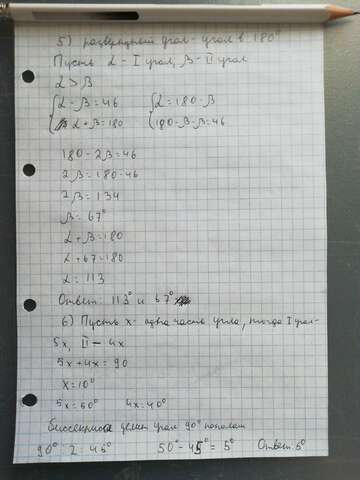 5) развернутый угол - угол в 180°
Пусть α - I угол, β - II угол
α > β
α - β = 46 α = 180 - β
α + β = 180 180 - β - β = 46
180 - 2β = 46
2β = 180 - 46
2β = 134
β = 67°
α + β = 180
α + 67 = 180
α = 113
Ответ: 113° и 67°
6) Пусть x - одна часть угла, тогда I угол -
5x, II - 4x
5x + 4x = 90
x = 10°
5x = 50° 4x = 40°
биссектриса делит угол 90° пополам
90° : 2 = 45° 50° - 45° = 5° Ответ: 5°